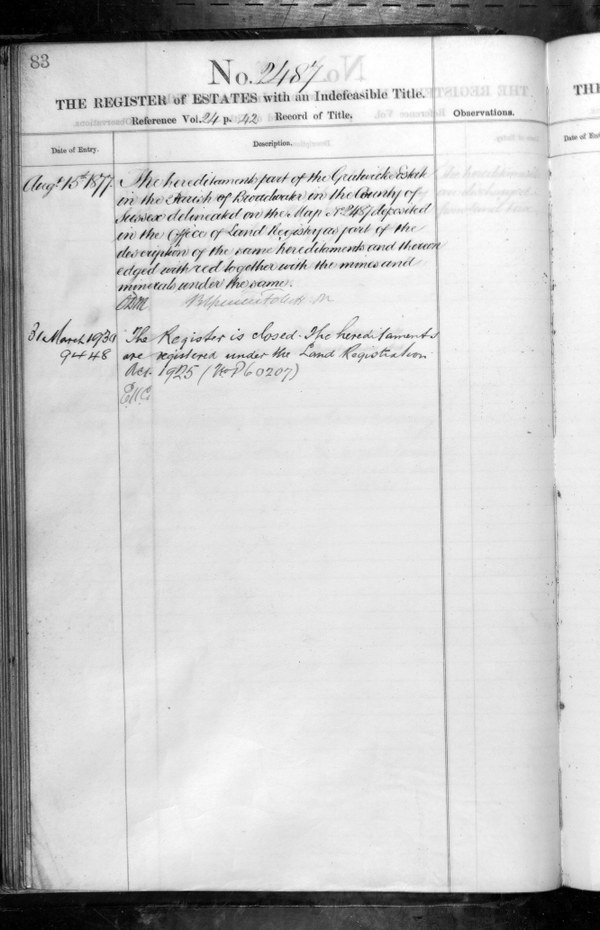 83
No. 2487
THE REGISTER of ESTATES with an Indefeasible Title.
Reference Vol. 24 p. 42 Record of Title.
Observations.
Date of Entry.
Description.
Augt 15th 1877
The hereditaments part of the Gratwicke Estate
in the Parish of Broadwater in the County of
Sussex delineated on the Map No 2487 deposited
in the Office of Land Registry as part of the
description of the same hereditaments and thereon
edged with red together with the mines and
minerals under the same.
31 March 1930
9448
The Register is closed. The hereditaments
are registered under the Land Registration
Act. 1925 (No P60207)
THE
Date of Ent